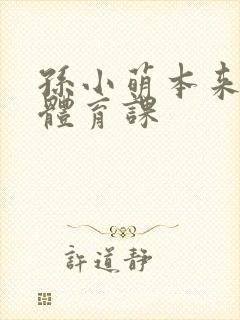 孫小萌本来
體育課
許道静